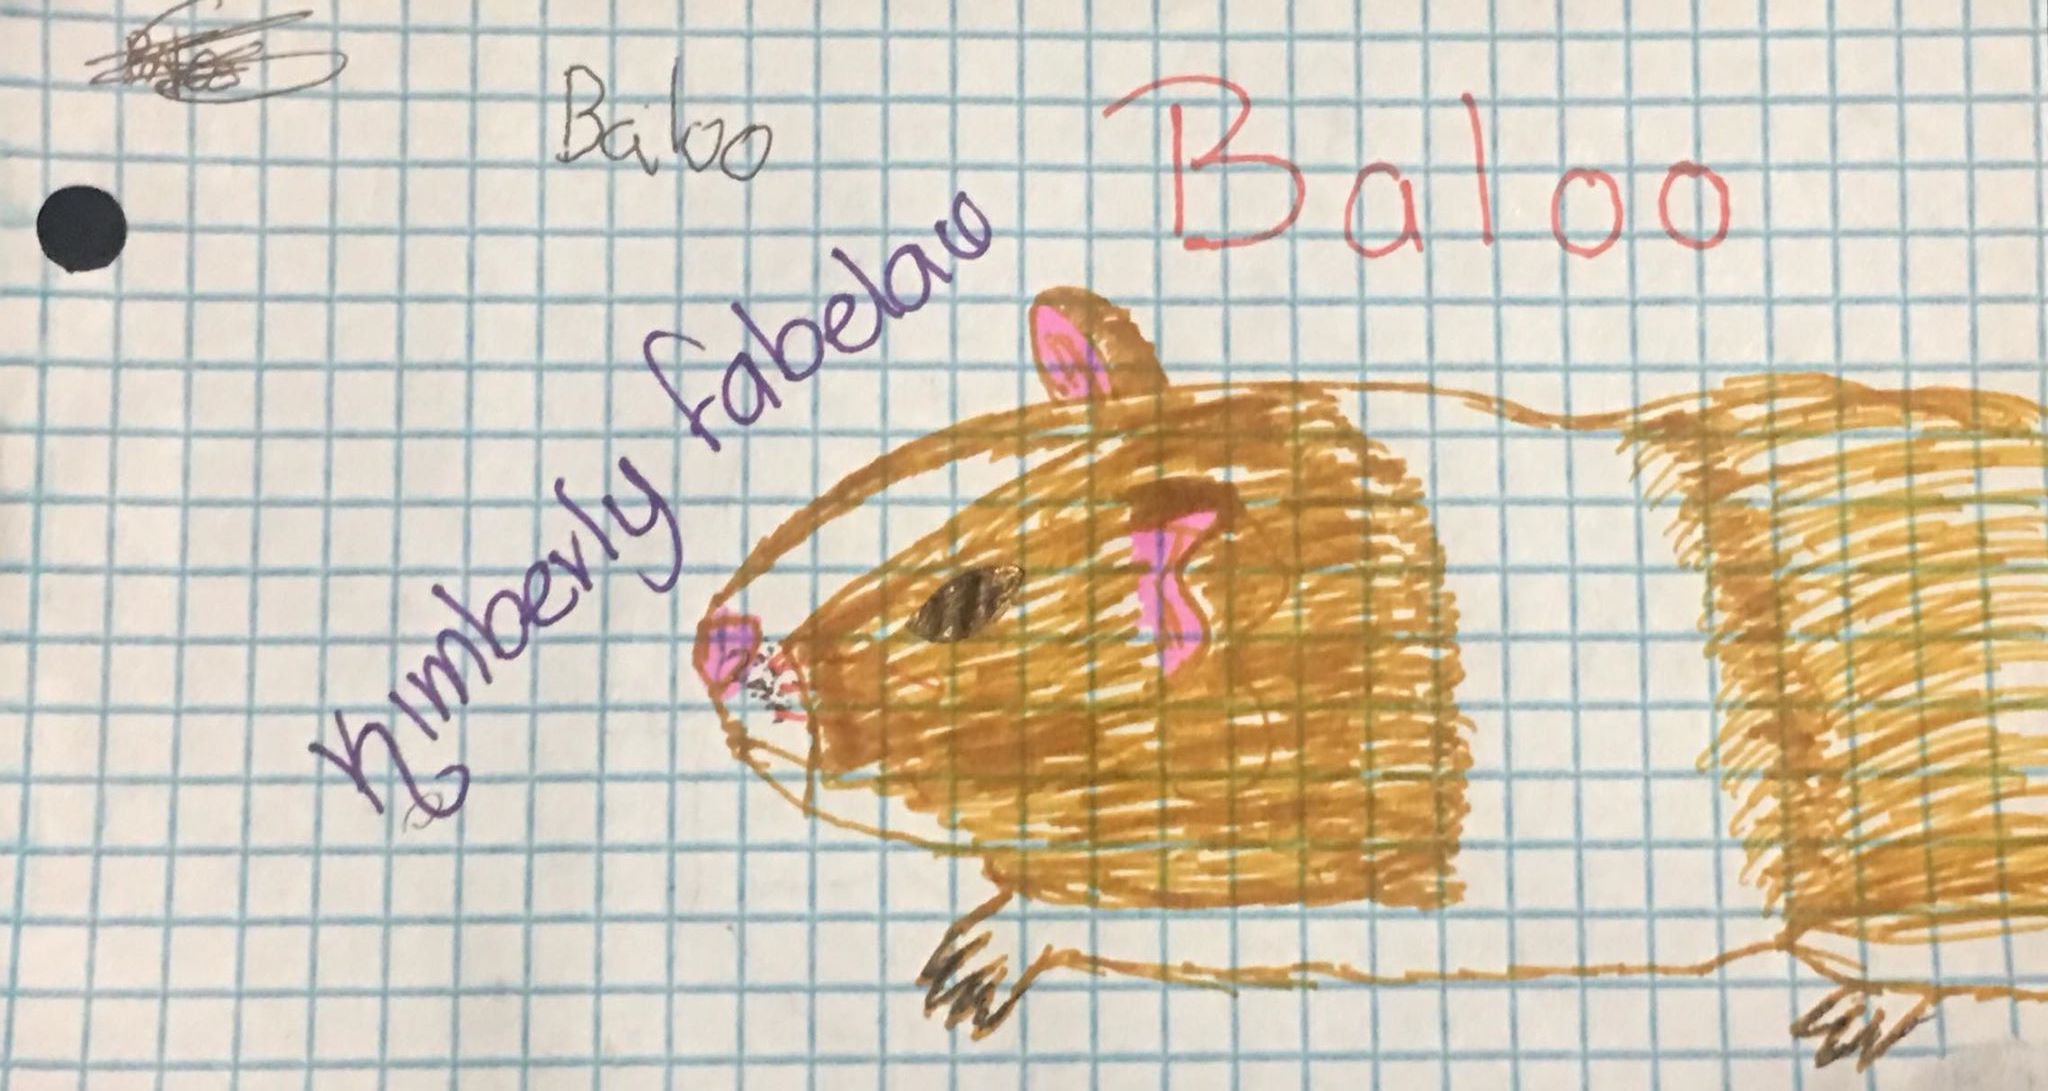 Baloo
Baloo
Kimberly fabelaw